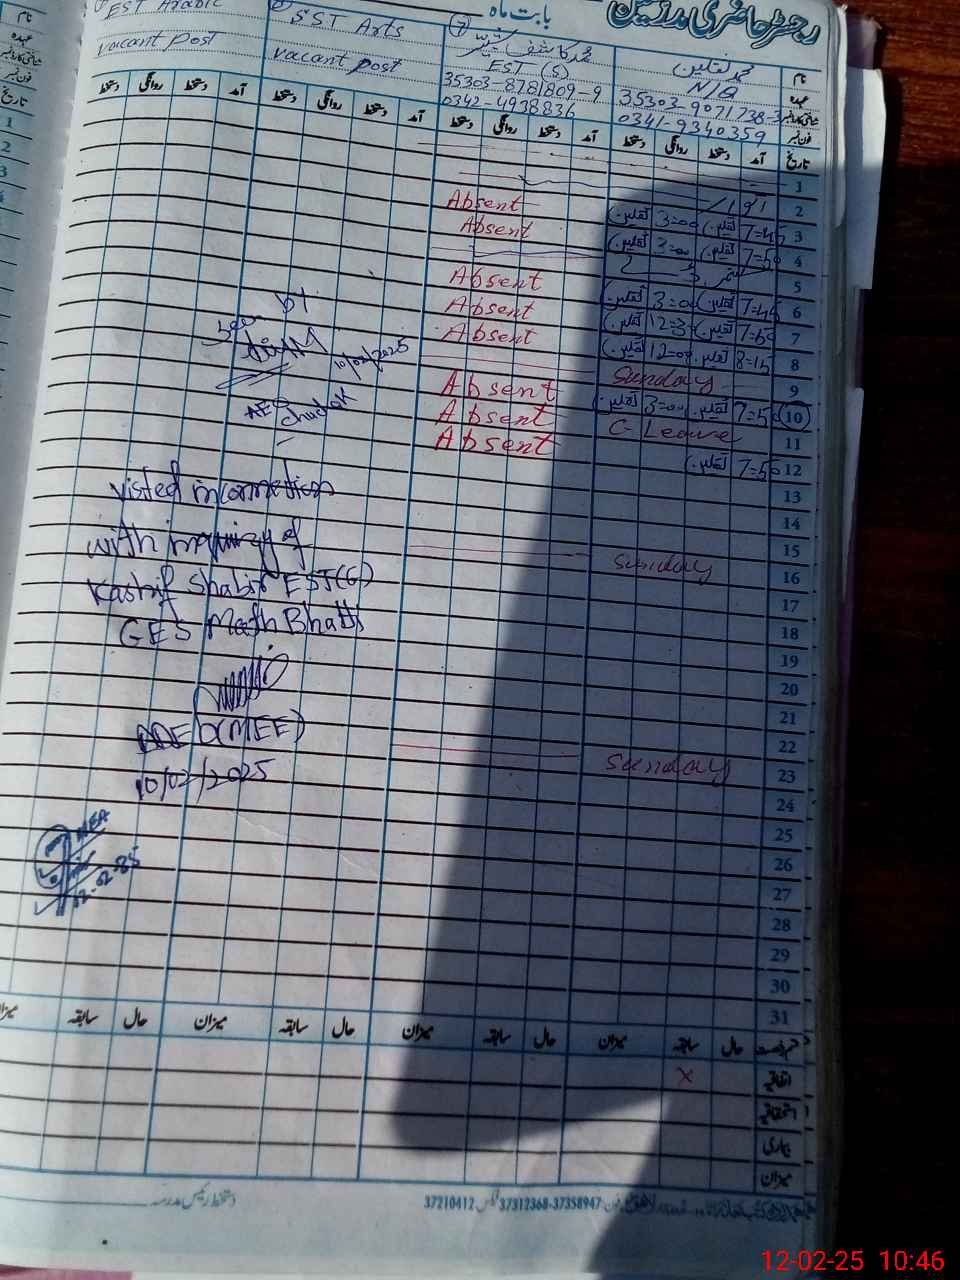 رجسٹر حاضری مدرسین
بابت ماہ
EST Arabic
vacant post
SST Arts
vacant post
EST (S)
35303-8781809-9
0342-4938836
محمد ثقلین
N/Q
35303-9071738-3
0341-9340359
نام
عہدہ
فون نمبر
تاریخ آمد دستخط روانگی دستخط آمد دستخط روانگی دستخط آمد دستخط روانگی دستخط آمد دستخط روانگی دستخط
1
2 Absent
3 7=45 ثقلین 3=00 ثقلین Absent
4 7=50 ثقلین 3=00 ثقلین
5 Absent
6 7=45 ثقلین 3=00 ثقلین Absent
7 7=50 ثقلین 12=3 ثقلین Absent
8 8=15 ثقلین 12=00 ثقلین
9 Sunday Absent
10 7=50 ثقلین 3=00 ثقلین Absent
11 C-Leave Absent
12 7=50 ثقلین
13
14
15
16 Sunday
17
18
19
20
21
22
23 Sunday
24
25
26
27
28
29
30
31
Seen by
10/02/2025
AEO
visted in connection
with inquiry of
Kashif Shabir EST(G)
GES Math Bhatti
(MEE)
10/02/2025
MEA
12-02-25
حال سابقہ میزان حال سابقہ میزان حال سابقہ میزان حال سابقہ میزان
اتفاقیہ X
استحقاقیہ
بیماری
میزان
دستخط رئیس مدرسہ
37312368-37358947 فیکس 37210412
12-02-25 10:46